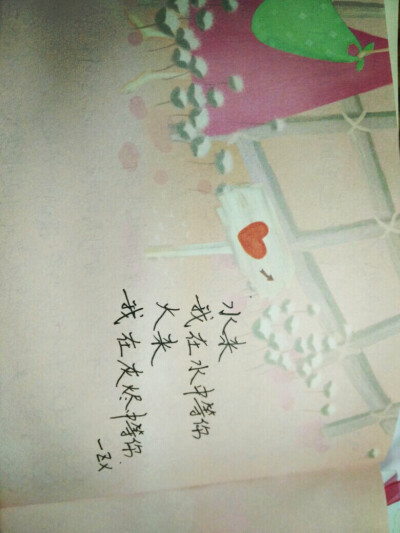 水来
我在水中等你
火来
我在灰烬中等你
—ZX